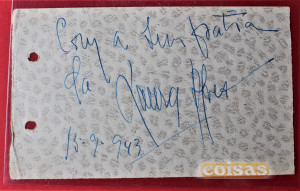 Com a simpatia
da
15-9-943
coisas